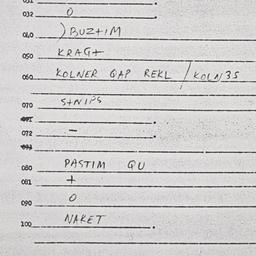 031
032 O
040 ) BUZ+IM
050 KRAG+
060 KOLNER GAP REKL / KOLN 35
070 S+NIPS
071
072 -
073
080 PASTIM QU
081 +
090 O
100 NAKET